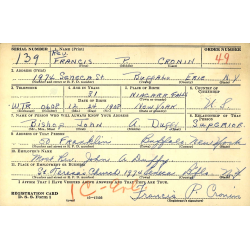 SERIAL NUMBER 1. NAME (Print) ORDER NUMBER
139 REV. FRANCIS P. CRONIN 49
1974 SENECA ST. BUFFALO ERIE N.Y.
3. TELEPHONE 4. AGE IN YEARS 5. PLACE OF BIRTH 6. COUNTRY OF CITIZENSHIP
31 NIAGARA FALLS
NEW YORK U.S.
7. NAME OF PERSON WHO WILL ALWAYS KNOW YOUR ADDRESS 8. RELATIONSHIP OF THAT PERSON
BISHOP JOHN A. DUFFY SUPERIOR
9. ADDRESS OF THAT PERSON
Franklin Buffalo New York
10. EMPLOYER'S NAME
Most Rev. John A. Duffy
11. PLACE OF EMPLOYMENT OR BUSINESS
St Teresa Church 1974 Seneca Bflo. N.Y.
I AFFIRM THAT I HAVE VERIFIED ABOVE ANSWERS AND THAT THEY ARE TRUE.
REGISTRATION CARD
D. S. S. Form 1
Francis P. Cronin